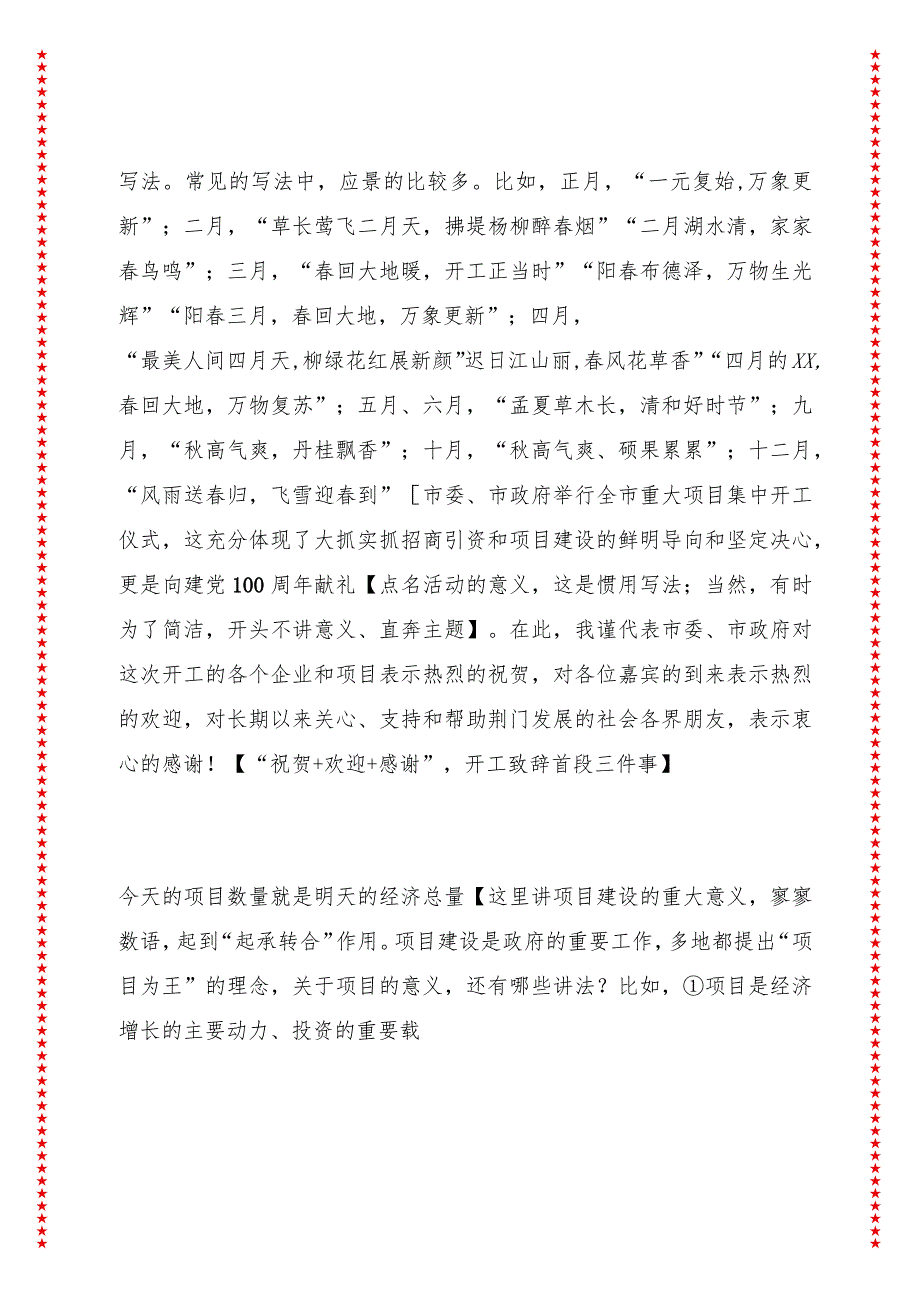 写法。常见的写法中，应景的比较多。比如，正月，“一元复始,万象更
新”；二月，“草长莺飞二月天，拂堤杨柳醉春烟”“二月湖水清，家家
春鸟鸣”；三月，“春回大地暖，开工正当时”“阳春布德泽，万物生光
辉”“阳春三月，春回大地，万象更新”；四月，
“最美人间四月天,柳绿花红展新颜”迟日江山丽,春风花草香”“四月的XX,
春回大地，万物复苏”；五月、六月，“孟夏草木长，清和好时节”；九
月，“秋高气爽，丹桂飘香”；十月，“秋高气爽、硕果累累”；十二月，
“风雨送春归，飞雪迎春到”［市委、市政府举行全市重大项目集中开工
仪式，这充分体现了大抓实抓招商引资和项目建设的鲜明导向和坚定决心，
更是向建党100周年献礼【点名活动的意义，这是惯用写法；当然，有时
为了简洁，开头不讲意义、直奔主题】。在此，我谨代表市委、市政府对
这次开工的各个企业和项目表示热烈的祝贺，对各位嘉宾的到来表示热烈
的欢迎，对长期以来关心、支持和帮助荆门发展的社会各界朋友，表示衷
心的感谢！【“祝贺+欢迎+感谢”，开工致辞首段三件事】
今天的项目数量就是明天的经济总量【这里讲项目建设的重大意义，寥寥
数语,起到“起承转合”作用。项目建设是政府的重要工作,多地都提出“项
目为王”的理念，关于项目的意义，还有哪些讲法？比如，①项目是经济
增长的主要动力、投资的重要载